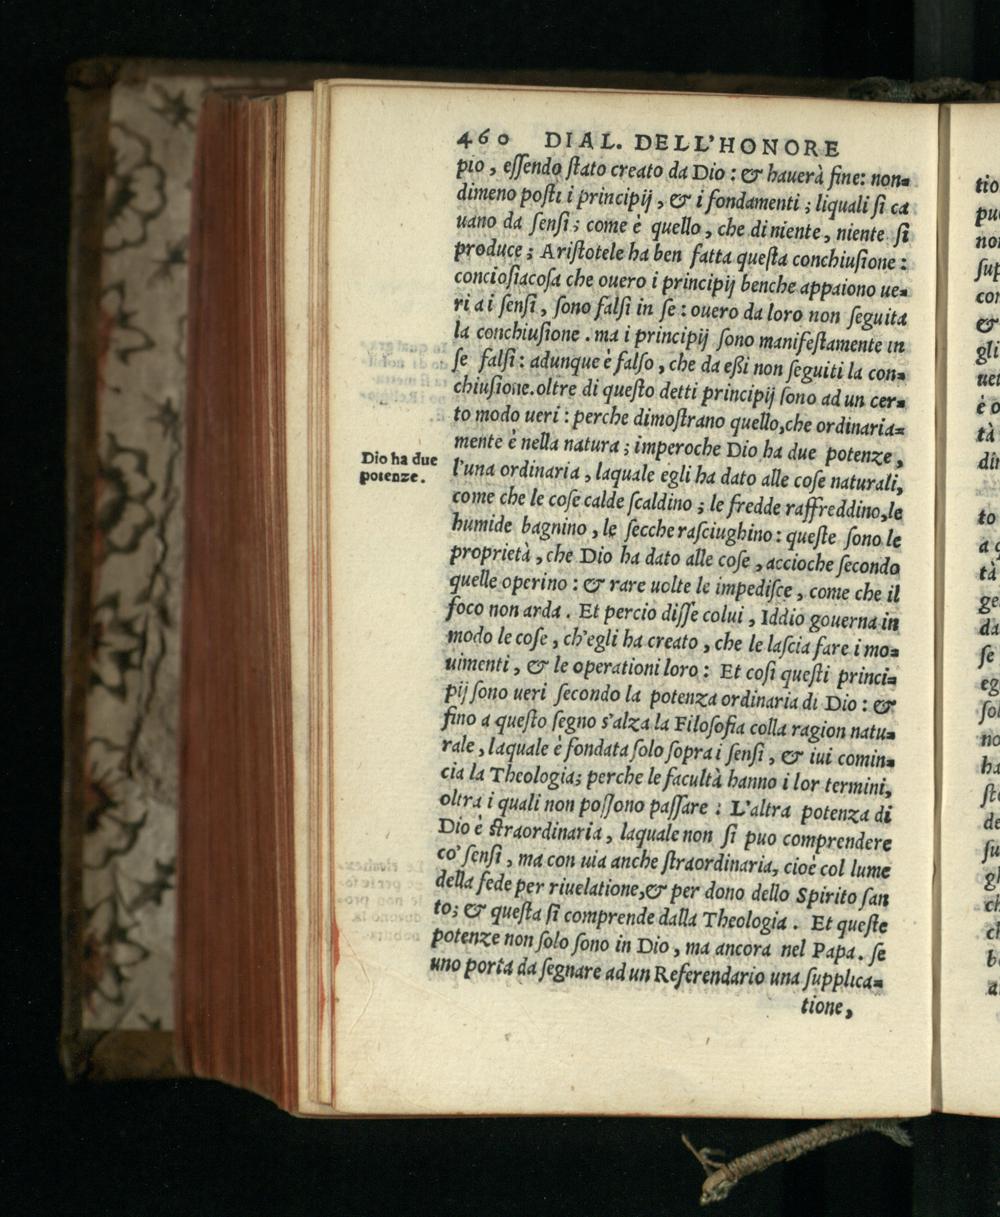 460 DIAL. DELL'HONORE
pio, eſſendo ſtato creato da Dio: & hauerà fine: non=
dimeno poſti i principij, & i fondamenti; liquali ſi ca
uano da ſenſi; come è quello, che di niente, niente ſi
produce; Ariſtotele ha ben fatta queſta conchiuſione:
concioſiacoſa che ouero i principij benche appaiono ue=
ri a i ſenſi, ſono falſi in ſe: ouero da loro non ſeguita
la conchiuſione. ma i principij ſono manifeſtamente in
ſe falſi: adunque è falſo, che da eßi non ſeguiti la con=
chiuſione. oltre di queſto detti principij ſono ad un cer=
to modo ueri: perche dimoſtrano quello, che ordinaria=
mente è nella natura; imperoche Dio ha due potenze,
Dio ha due
potenze.
l'una ordinaria, laquale egli ha dato alle coſe naturali,
come che le coſe calde ſcaldino; le fredde raffreddino, le
humide bagnino, le ſecche raſciughino: queſte ſono le
proprietà, che Dio ha dato alle coſe, accioche ſecondo
quelle operino: & rare uolte le impediſce, come che il
foco non arda. Et percio diſſe colui, Iddio gouerna in
modo le coſe, ch'egli ha creato, che le laſcia fare i mo=
uimenti, & le operationi loro: Et coſi queſti princi=
pij ſono ueri ſecondo la potenza ordinaria di Dio: &
fino a queſto ſegno s'alza la Filoſofia colla ragion natu=
rale, laquale è fondata ſolo ſopra i ſenſi, & iui comin=
cia la Theologia; perche le facultà hanno i lor termini,
oltra i quali non poſſono paſſare: L'altra potenza di
Dio è ſtraordinaria, laquale non ſi puo comprendere
co' ſenſi, ma con uia anche ſtraordinaria, cioè col lume
della fede per riuelatione, & per dono dello Spirito ſan
to; & queſta ſi comprende dalla Theologia. Et queſte
potenze non ſolo ſono in Dio, ma ancora nel Papa. ſe
uno porta da ſegnare ad un Referendario una ſupplica=
tione,